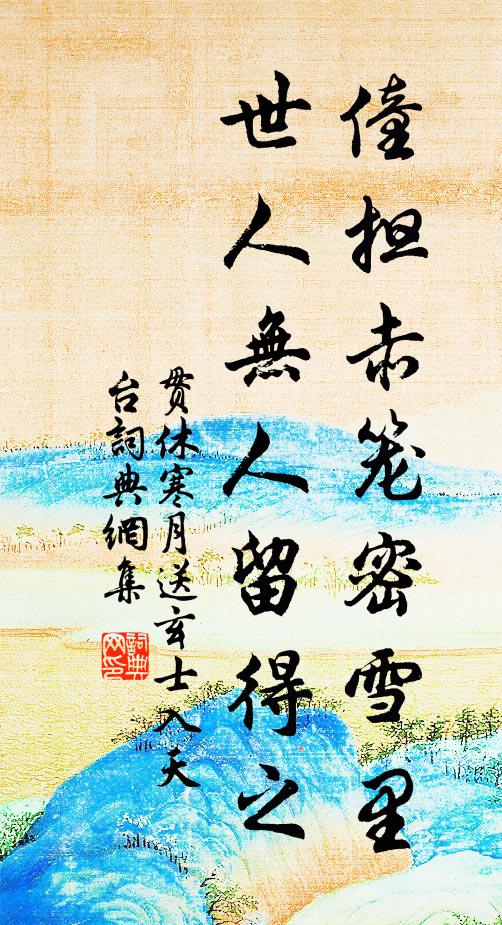 僮担赤笼密雪里
世人無人留得之
贯休寒月送玄士入天
台詞典網集
詞典